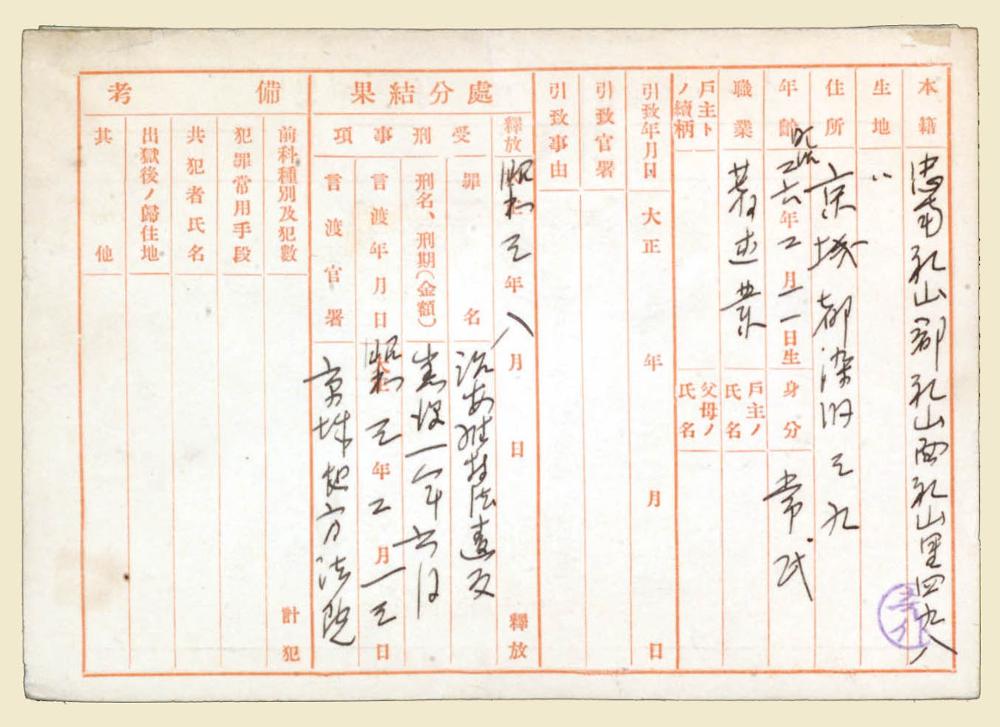 本籍 忠南礼山郡礼山面礼山里四九八
生地 〃
住所 京城都染町三九
年齢 明治 二六年二月一一日生 身分 常民
職業 著述業 戶主ノ氏名
戶主トノ續柄 父母ノ氏名
引致年月日 大正 年 月 日
引致官署
引致事由
處分結果
釋放 昭和 三年 八月 日 釋放
受刑事項
罪名 治安維持法違反
刑名、刑期(金額) 懲役一年六月
言渡年月日 昭和 三年二月一三日
言渡官署 京城地方法院
備考
前科種別及犯數 計 犯
犯罪常用手段
共犯者氏名
出獄後ノ歸住地
其他